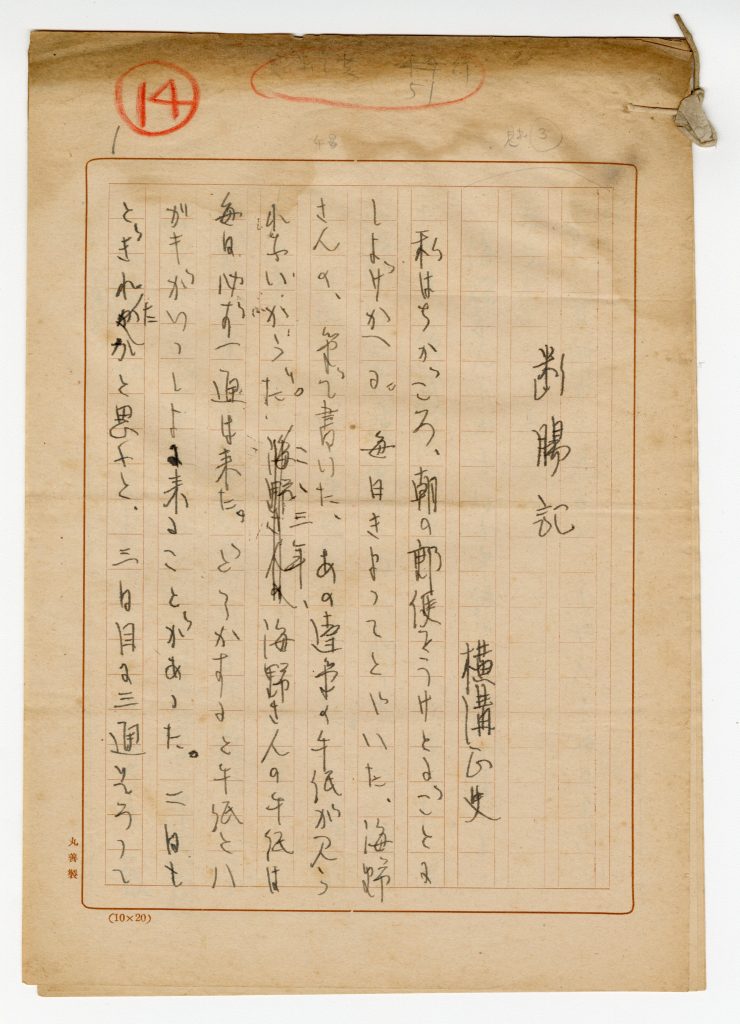 14
51
断腸記
横溝正史
私はちかごろ、朝の郵便をうけとるごとに
しよげかへる。毎日きまつてとゞいた、海野
さんの、筆で書いた、あの達筆の手紙が見ら
れないからだ。こゝ三年、海野さんの手紙は
毎日必ず一通は来た。どうかすると手紙とハ
ガキがいつしよに来ることがあつた。二日も
とぎれたかと思ふと、三日目に三通そろつて
丸善製
(10×20)